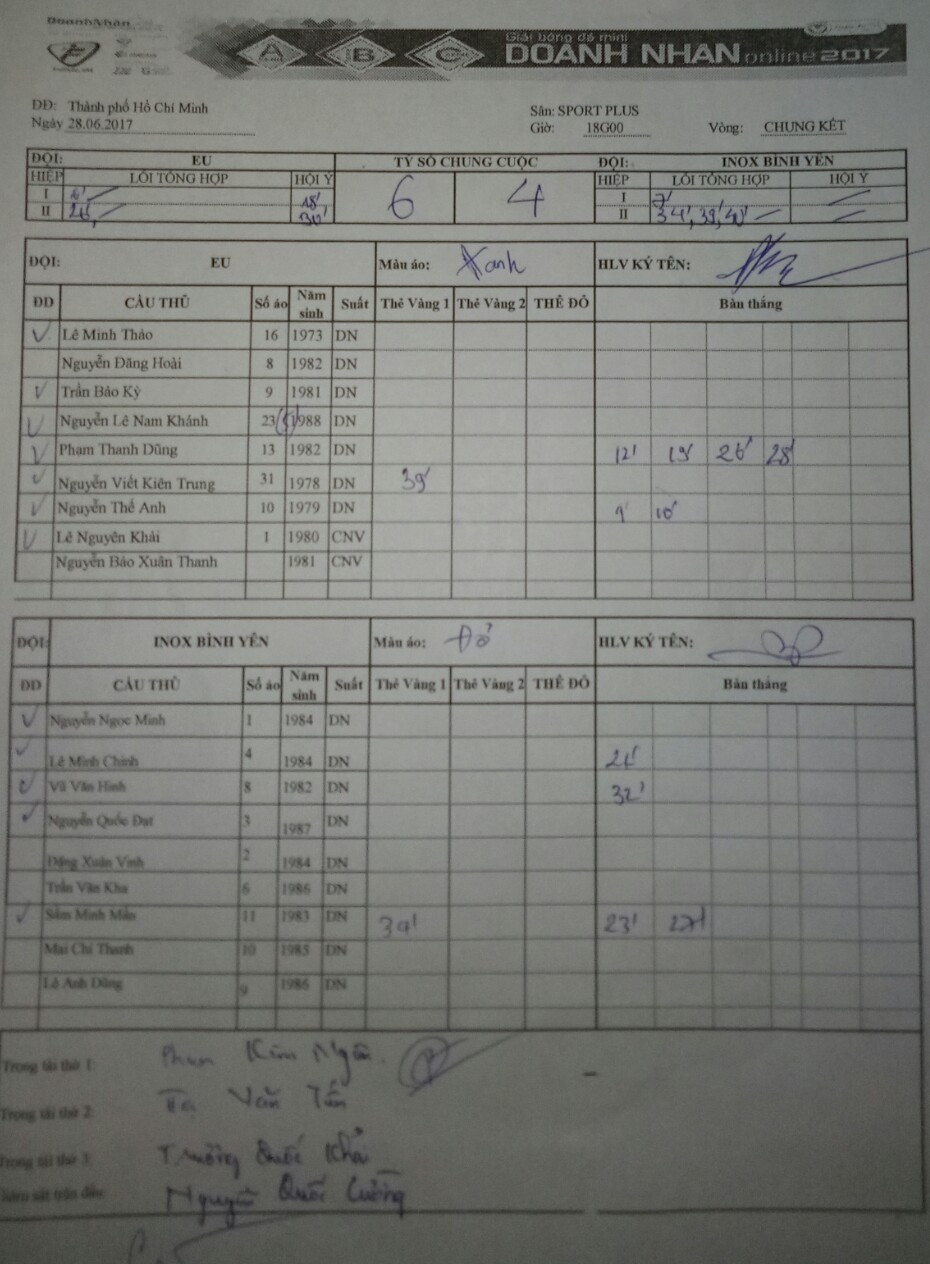 DoanhNhân
A B C Giải bóng đá mini
DOANH NHAN online 2017
ĐĐ: Thành phố Hồ Chí Minh Sân: SPORT PLUS
Ngày 28.06.2017 Giờ: 18G00 Vòng: CHUNG KẾT
ĐỘI: EU TỶ SỐ CHUNG CUỘC ĐỘI: INOX BÌNH YÊN
HIỆP LỖI TỔNG HỢP HỘI Ý 6 4 HIỆP LỖI TỔNG HỢP HỘI Ý
I 6' 18' I 7'
II II 34', 39', 40'
ĐỘI: EU Màu áo: Xanh HLV KÝ TÊN:
ĐD CẦU THỦ Số áo Năm sinh Suất Thẻ Vàng 1 Thẻ Vàng 2 THẺ ĐỎ Bàn thắng
Lê Minh Thảo 16 1973 DN
Nguyễn Đăng Hoài 8 1982 DN
Trần Bảo Kỳ 9 1981 DN
Nguyễn Lê Nam Khánh 23 (5) 1988 DN
Phạm Thanh Dũng 13 1982 DN 12' 19' 26' 28'
Nguyễn Viết Kiên Trung 31 1978 DN 39'
Nguyễn Thế Anh 10 1979 DN 9' 10'
Lê Nguyên Khải 1 1980 CNV
Nguyễn Bảo Xuân Thanh 1981 CNV
ĐỘI: INOX BÌNH YÊN Màu áo: Đỏ HLV KÝ TÊN:
ĐD CẦU THỦ Số áo Năm sinh Suất Thẻ Vàng 1 Thẻ Vàng 2 THẺ ĐỎ Bàn thắng
Nguyễn Ngọc Minh 1 1984 DN
Lê Minh Chinh 4 1984 DN 21'
Vũ Văn Hinh 8 1982 DN 32'
Nguyễn Quốc Đạt 3 1987 DN
Đặng Xuân Vinh 2 1984 DN
Trần Văn Kha 6 1986 DN
Sầm Minh Mẫn 11 1983 DN 39' 23' 27'
Mai Chí Thanh 10 1985 DN
Lê Anh Dũng 9 1986 DN
Trọng tài thứ 1: Phan Kim Ngân
Trọng tài thứ 2: Tạ Văn Tấn
Trọng tài thứ 3: Trương Quốc Khải
Giám sát trận đấu: Nguyễn Quốc Cường